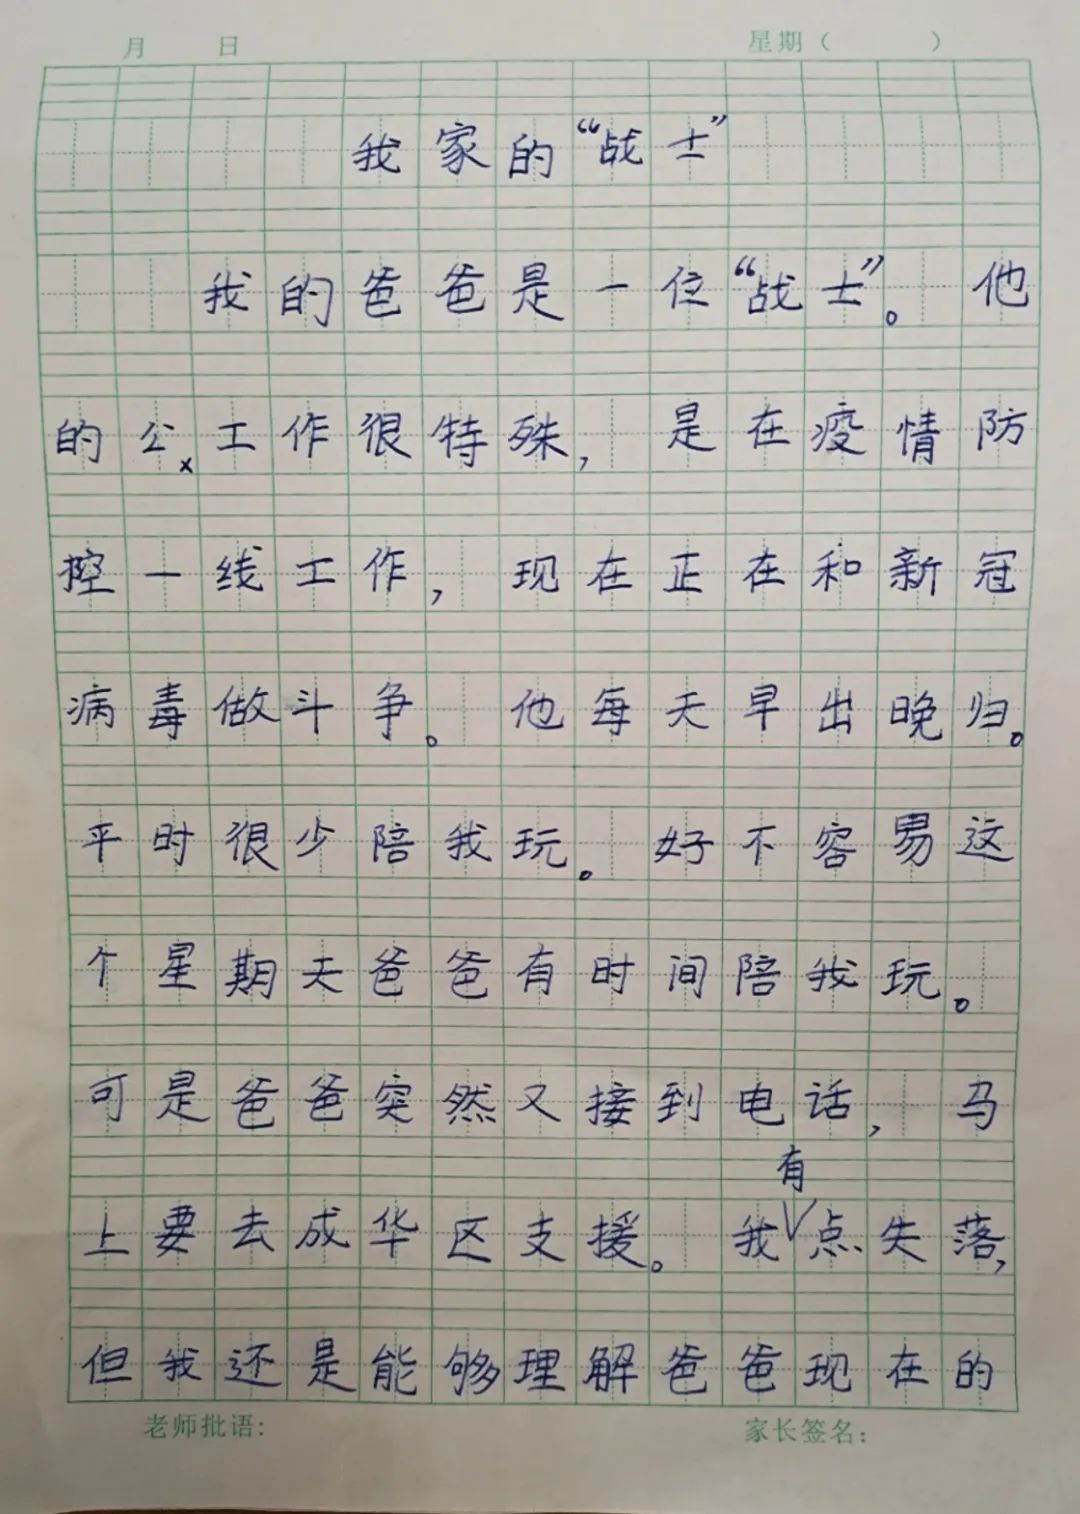 月 日 星期（ ）
我家的“战士”
我的爸爸是一位“战士”。他
的公×工作很特殊，是在疫情防
控一线工作，现在正在和新冠
病毒做斗争。他每天早出晚归。
平时很少陪我玩。好不容易这
个星期天爸爸有时间陪我玩。
可是爸爸突然又接到电话，马
上要去成华区支援。我有点失落，
但我还是能够理解爸爸现在的
老师批语： 家长签名：